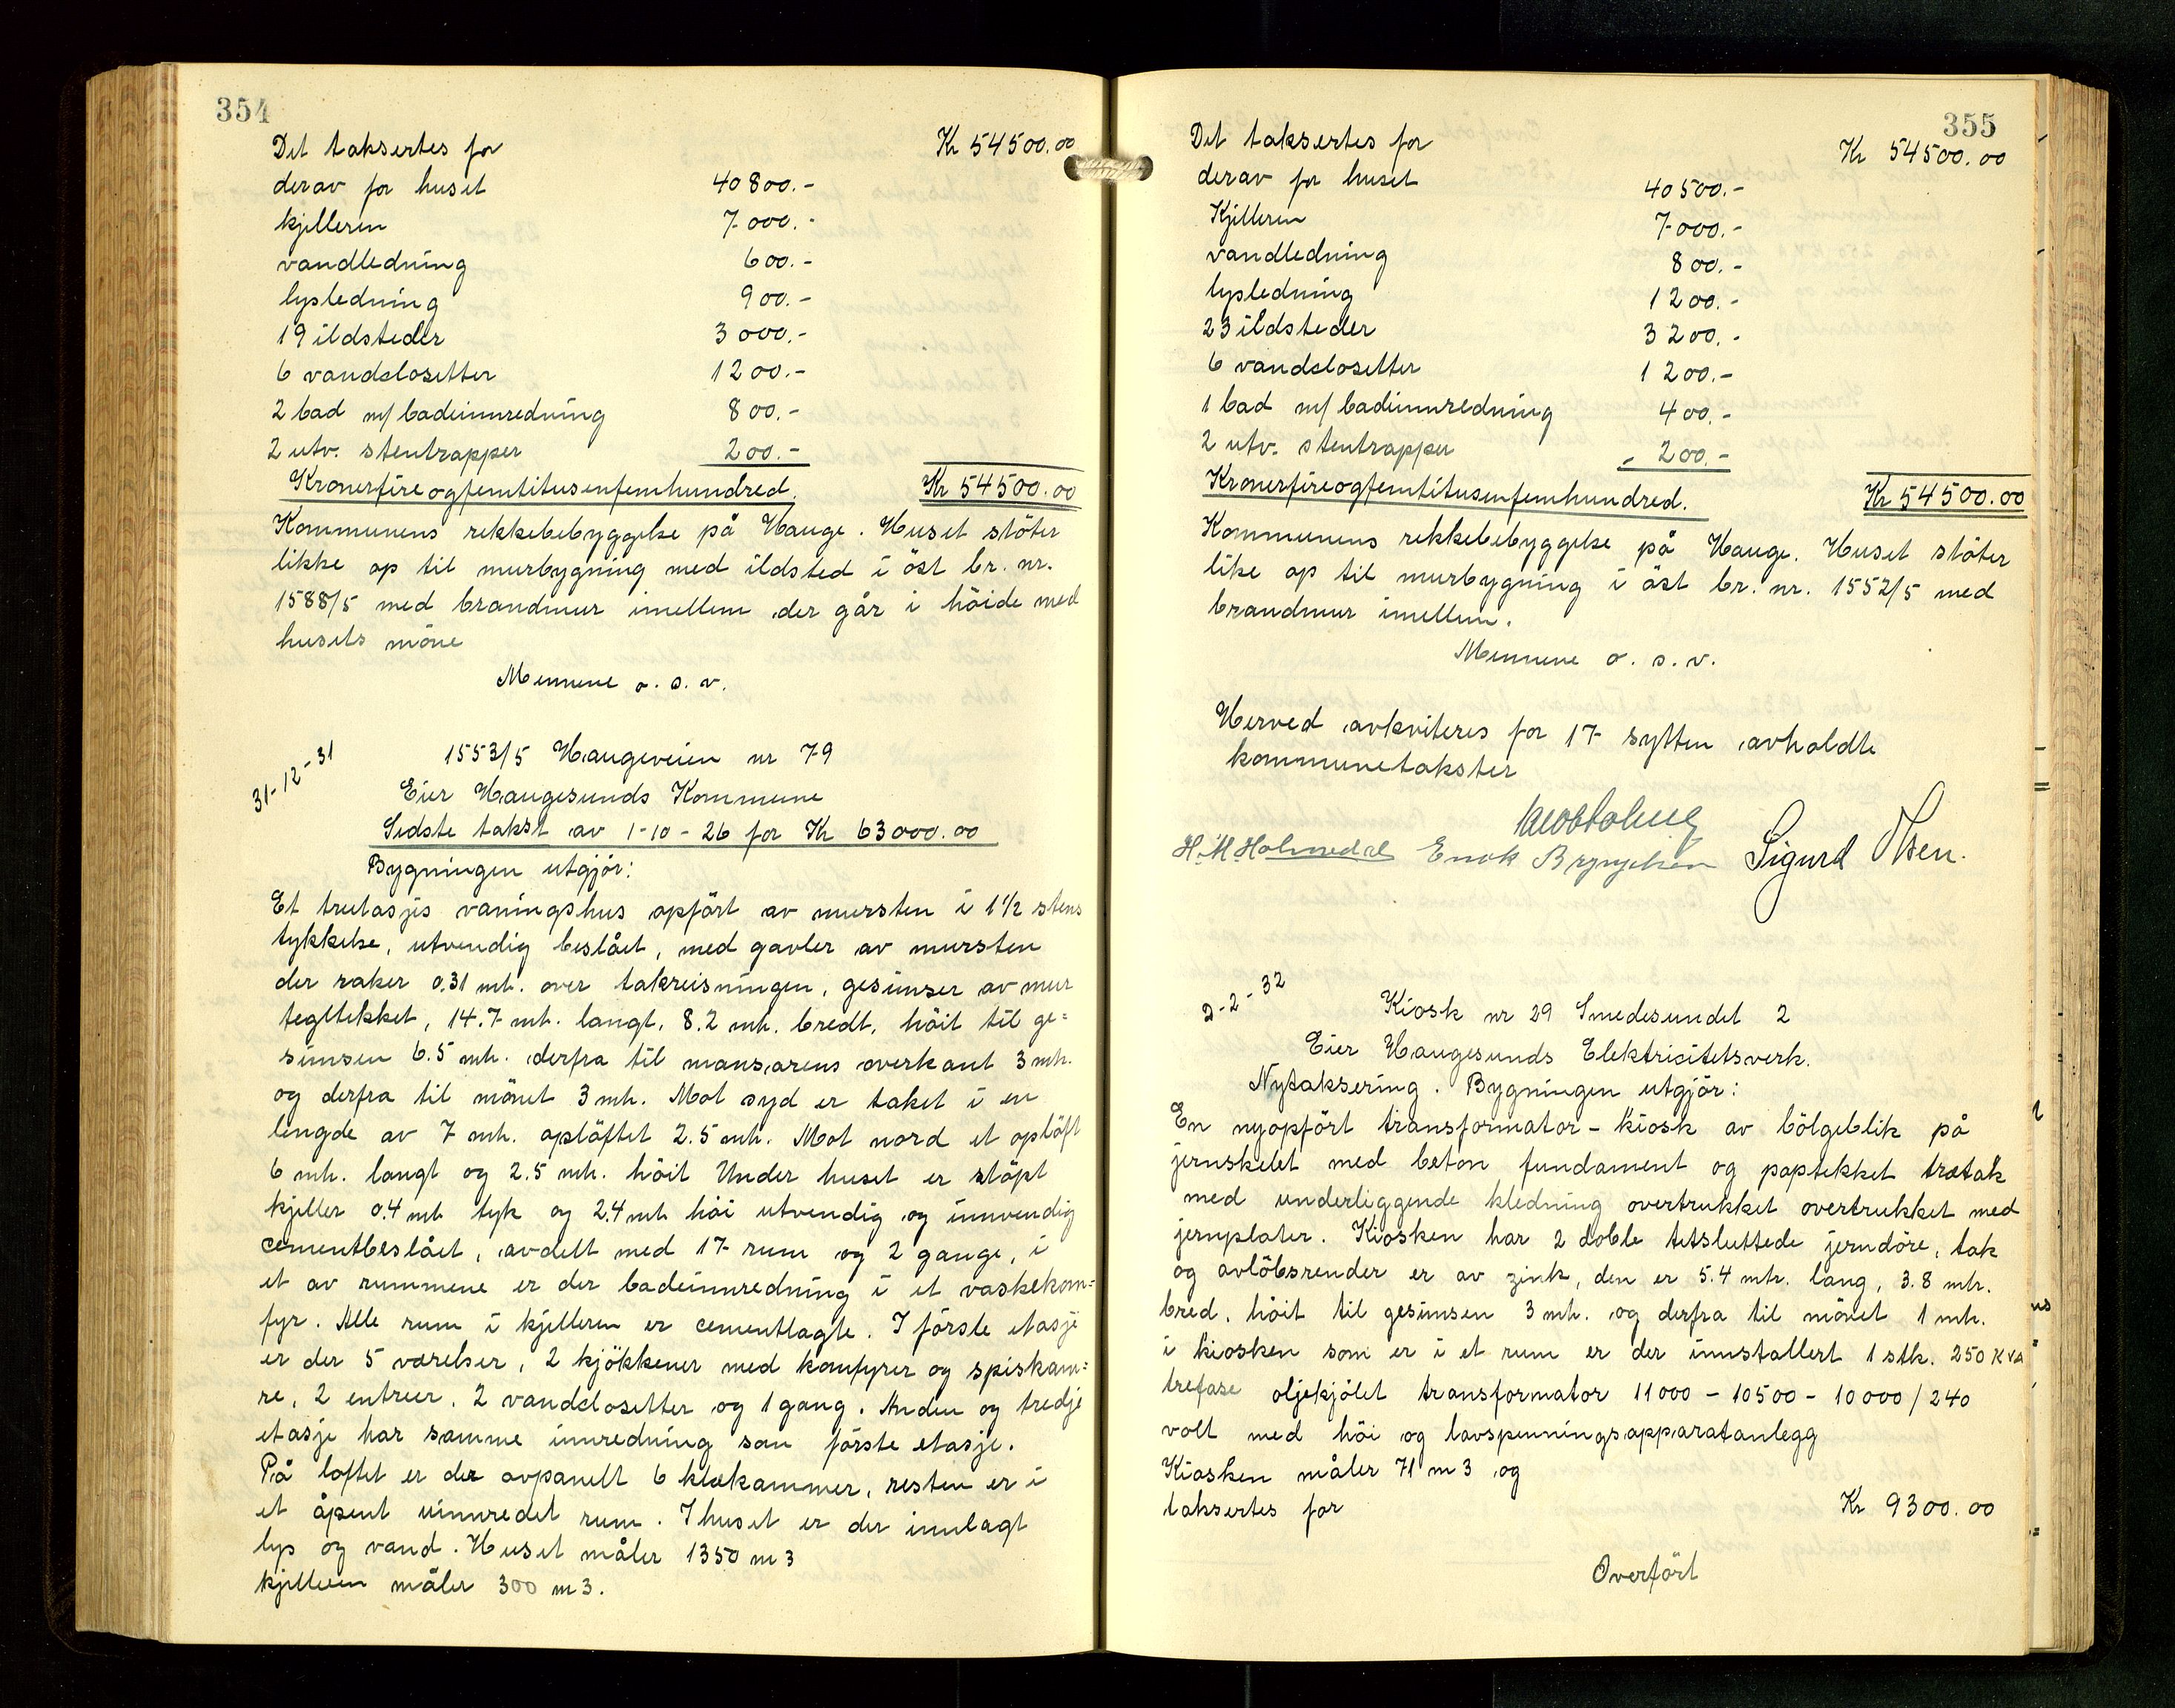 354
Det taksertes for Kr 54500.00
derav for huset 40800.-
kjelleren 7000.-
vandledning 600.-
lysledning 900.-
19 ildsteder 3000.-
6 vandclosetter 1200.-
2 bad m/ badeinnredning 800.-
2 utv. stentrapper 200.-
Kronerfireogfemtitusenfemhundred. Kr 54500.00
Kommunens rekkebebyggelse på Hauge. Huset stöter
likke op til murbygning med ildsted i öst br. nr.
1588/5 med brandmur imellem der går i höide med
husets möne
Mennene o. s. v.
31-12-31
1553/5 Haugeveien nr 79
Eier Haugesunds Kommune
Sidste takst av 1-10-26 for Kr 63000.00
Bygningen utgjör:
Et treetasjes vaningshus opfört av mursten i 1 1/2 stens
tykkelse, utvendig beslået, med gavler av mursten
der raker 0.31 mtr. over takreisningen, gesimser av mur
tegltekket, 14.7 mtr. langt, 8.2 mtr. bredt, höit til ge=
simsen 6.5 mtr. derfra til mansarens overkant 3 mtr.
og derfra til mönet 3 mtr. Mot syd er taket i en
lengde av 7 mtr. oplöftet 2.5 mtr. Mot nord et oplöft
6 mtr. langt og 2.5 mtr. höit Under huset er stöpt
kjeller 0.4 mtr tyk og 2.4 mtr höi utvendig og innvendig
cementbeslået, avdelt med 17 rum og 2 gange, i
et av rummene er der badeinnredning i et vaskekom=
fyr. Alle rum i kjelleren er cementlagte. I förste etasje
er der 5 værelser, 2 kjökkener med komfyrer og spiskam=
re, 2 entreer, 2 vandclosetter og 1 gang. Anden og tredje
etasje har samme innredning som förste etasje.
På loftet er der avpanelt 6 klækammer, resten er i
et åpent uinnredet rum. I huset er der innlagt
lys og vand. Huset måler 1350 m3
kjelleren måler 300 m3.
355
Det taksertes for Kr 54500.00
derav for huset 40500.-
Kjelleren 7000.-
vandledning 800.-
lysledning 1200.-
23 ildsteder 3200.-
6 vandclosetter 1200.-
1 bad m/ badeinnredning 400.-
2 utv. stentrapper 200.-
Kronerfireogfemtitusenfemhundred. Kr 54500.00
Kommunens rekkebebyggelse på Hauge. Huset stöter
like op til murbygning i öst br. nr. 1552/5 med
brandmur imellem.
Mennene o. s. v.
Herved avkviteres for 17 sytten avholdte
kommunetakster
H. M. Holmedal Enok Sigurd Olsen.
2-2-32
Kiosk nr 29 Smedesundet 2
Eier Haugesunds Elektricitetsverk.
Nytaksering. Bygningen utgjör:
En nyopfört transformator-kiosk av bölgeblik på
jernskelet med beton fundament og paptekket trætak
med underliggende kledning overtrukket overtrukket med
jernplater. Kiosken har 2 doble tetsluttede jerndöre, tak
og avlöbsrender er av zink, den er 5.4 mtr. lang, 3.8 mtr.
bred, höit til gesimsen 3 mtr. og derfra til mönet 1 mtr.
i kiosken som er i et rum er der innstallert 1 stk. 250 KVA
trefase oljekjölet transformator 11000 - 10500 - 10000/240
volt med höi og lavspenningsapparatanlegg
Kiosken måler 71 m3 og
taksertes for Kr 9300.00
Overfört